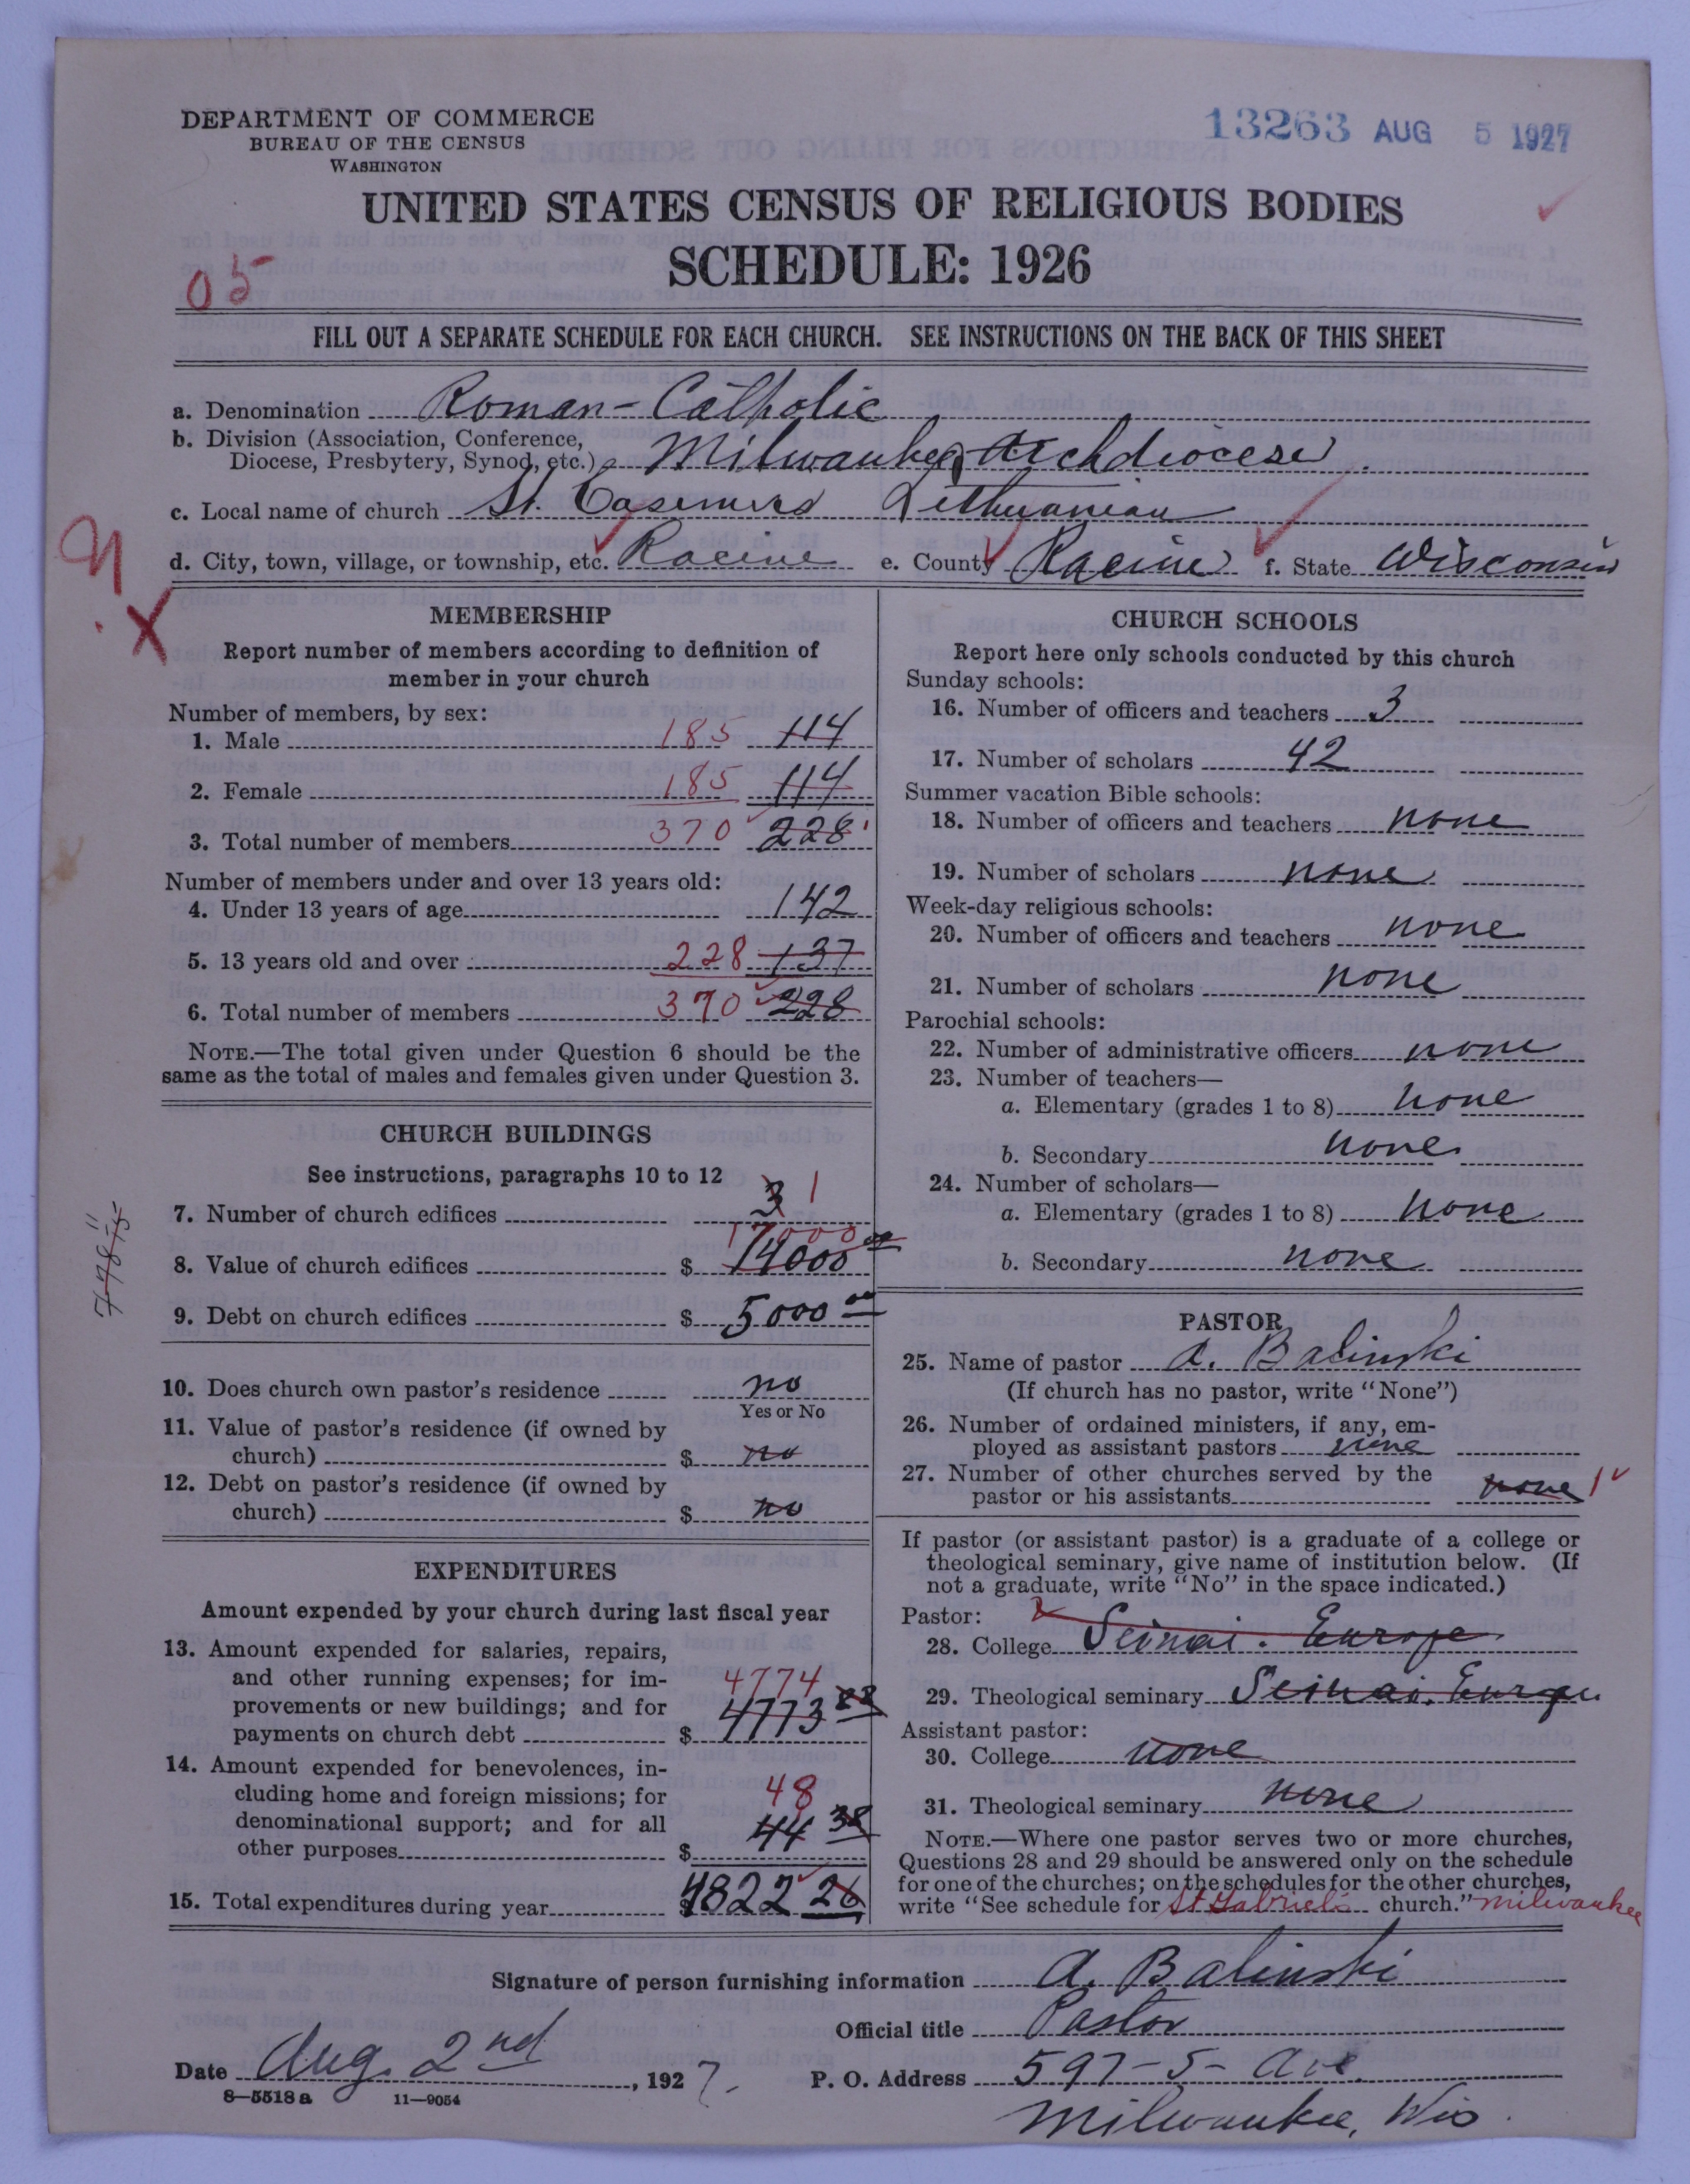 DEPARTMENT OF COMMERCE
BUREAU OF THE CENSUS
WASHINGTON
13263 AUG 5 1927
UNITED STATES CENSUS OF RELIGIOUS BODIES
SCHEDULE: 1926
05
FILL OUT A SEPARATE SCHEDULE FOR EACH CHURCH. SEE INSTRUCTIONS ON THE BACK OF THIS SHEET
a. Denomination Roman-Catholic
b. Division (Association, Conference,
Diocese, Presbytery, Synod, etc.) Milwaukee, Archdiocese.
c. Local name of church St. Casimirs Lithuanian
d. City, town, village, or township, etc. Racine e. County Racine f. State Wisconsin
X
MEMBERSHIP
Report number of members according to definition of
member in your church
Number of members, by sex:
1. Male 185 114
2. Female 185 114
3. Total number of members 370 228
Number of members under and over 13 years old:
4. Under 13 years of age 142
5. 13 years old and over 228 137
6. Total number of members 370 228
NOTE.—The total given under Question 6 should be the
same as the total of males and females given under Question 3.
CHURCH BUILDINGS
See instructions, paragraphs 10 to 12
7. Number of church edifices 3 1
17000
8. Value of church edifices $ 14000 00
9. Debt on church edifices $ 5000 00
10. Does church own pastor's residence no
Yes or No
11. Value of pastor's residence (if owned by
church) $ no
12. Debt on pastor's residence (if owned by
church) $ no
EXPENDITURES
Amount expended by your church during last fiscal year
13. Amount expended for salaries, repairs,
and other running expenses; for im-
provements or new buildings; and for
payments on church debt $ 4774 4773 88
14. Amount expended for benevolences, in-
cluding home and foreign missions; for
denominational support; and for all
other purposes $ 48 44 38
15. Total expenditures during year $ 4822 26
CHURCH SCHOOLS
Report here only schools conducted by this church
Sunday schools:
16. Number of officers and teachers 3
17. Number of scholars 42
Summer vacation Bible schools:
18. Number of officers and teachers none
19. Number of scholars none
Week-day religious schools:
20. Number of officers and teachers none
21. Number of scholars none
Parochial schools:
22. Number of administrative officers none
23. Number of teachers—
a. Elementary (grades 1 to 8) none
b. Secondary none
24. Number of scholars—
a. Elementary (grades 1 to 8) none
b. Secondary none
PASTOR
25. Name of pastor A. Balinski
(If church has no pastor, write "None")
26. Number of ordained ministers, if any, em-
ployed as assistant pastors none
27. Number of other churches served by the
pastor or his assistants none 1
If pastor (or assistant pastor) is a graduate of a college or
theological seminary, give name of institution below. (If
not a graduate, write "No" in the space indicated.)
Pastor:
28. College Seinai. Europe
29. Theological seminary Seinai. Europe
Assistant pastor:
30. College none
31. Theological seminary none
NOTE.—Where one pastor serves two or more churches,
Questions 28 and 29 should be answered only on the schedule
for one of the churches; on the schedules for the other churches,
write "See schedule for St Gabriel's church." Milwaukee
Signature of person furnishing information A. Balinski
Official title Pastor
Date Aug. 2nd, 1927. P. O. Address 597-5- Ave.
8-5518 a 11-9054
Milwaukee, Wis.